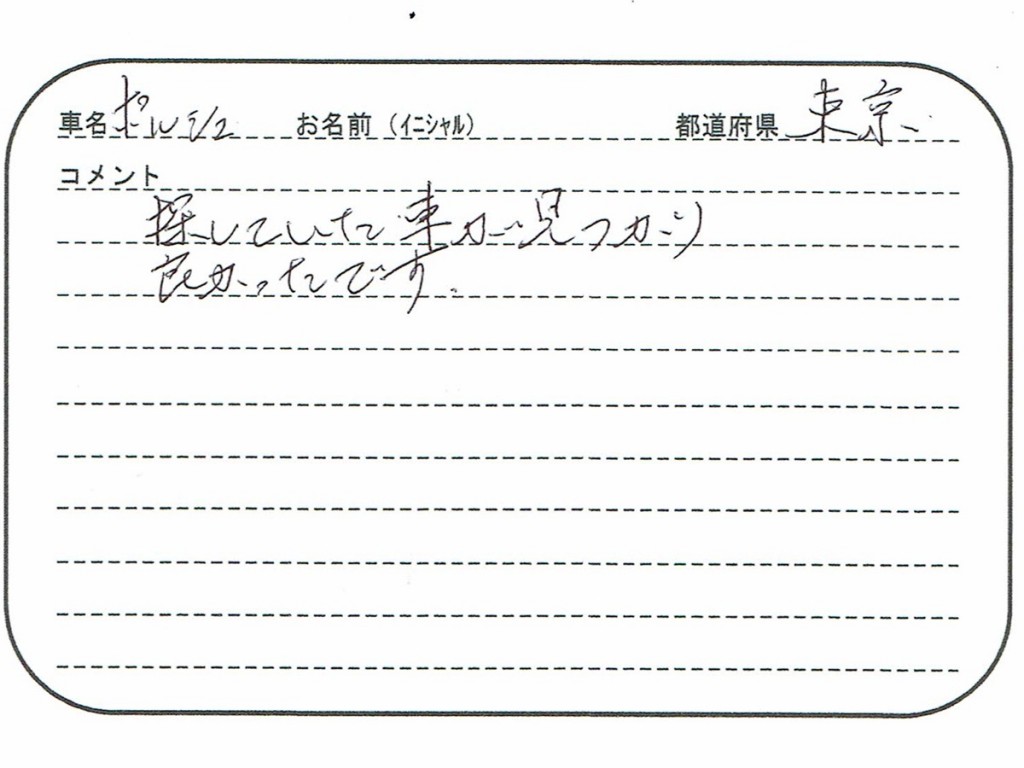 車名 ポルシェ お名前（イニシャル） 都道府県 東京
コメント
探していた車が見つかり
良かったです。